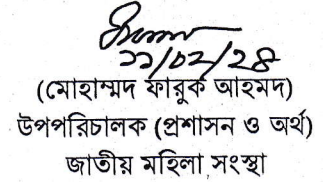 ২২/০২/২৪
(মোহাম্মদ ফারুক আহমদ)
উপপরিচালক (প্রশাসন ও অর্থ)
জাতীয় মহিলা সংস্থা